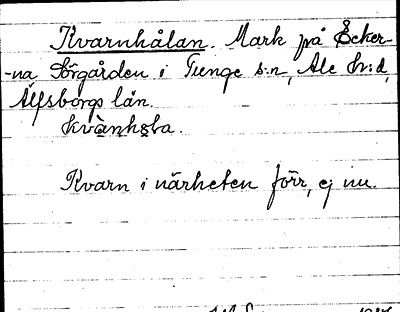 Kvarnhålan. Mark på Åcker-
-na Sörgården i Tunge s:n, Ale h:d,
Älfsborgs län.
kvànhɔ̀la.
Kvarn i närheten förr, ej nu.